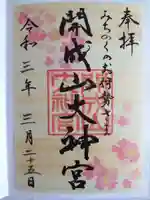 奉拝
みちのくのお伊勢さま
開成山大神宮
令和三年三月二十五日